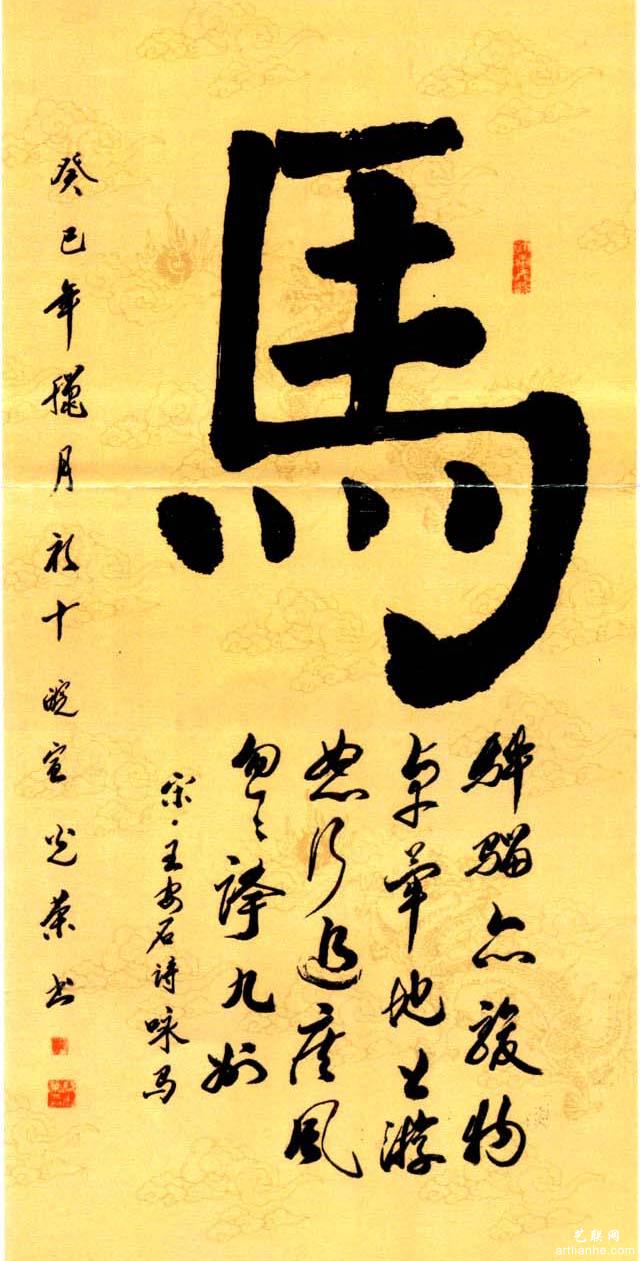 馬
驊騮亦駿物
卓犖地上游
怒行追疾風
忽忽跨九州
宋·王安石詩咏马
癸巳年臘月初十皖宣光荣书
艺联网
artlianhe.com